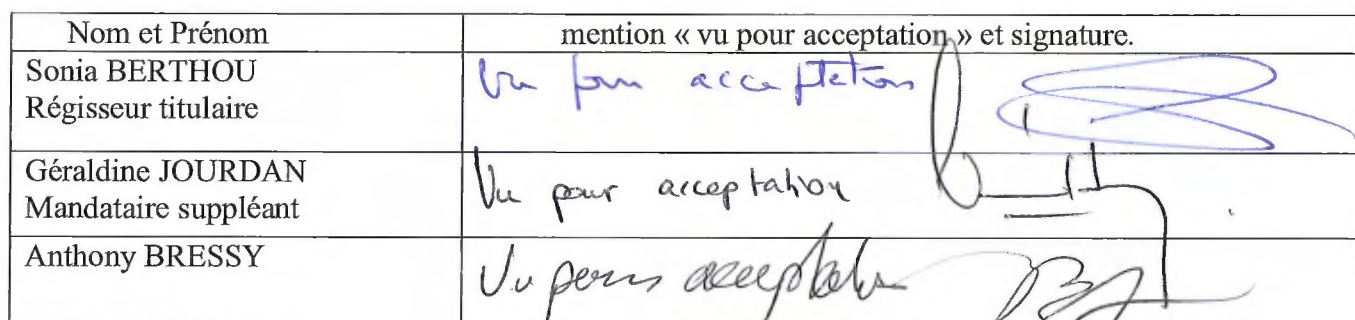 Nom et Prénom
mention « vu pour acceptation » et signature.
Sonia BERTHOU
Régisseur titulaire
Vu pour acceptation
Géraldine JOURDAN
Mandataire suppléant
Vu pour acceptation
Anthony BRESSY
Vu pour acceptation